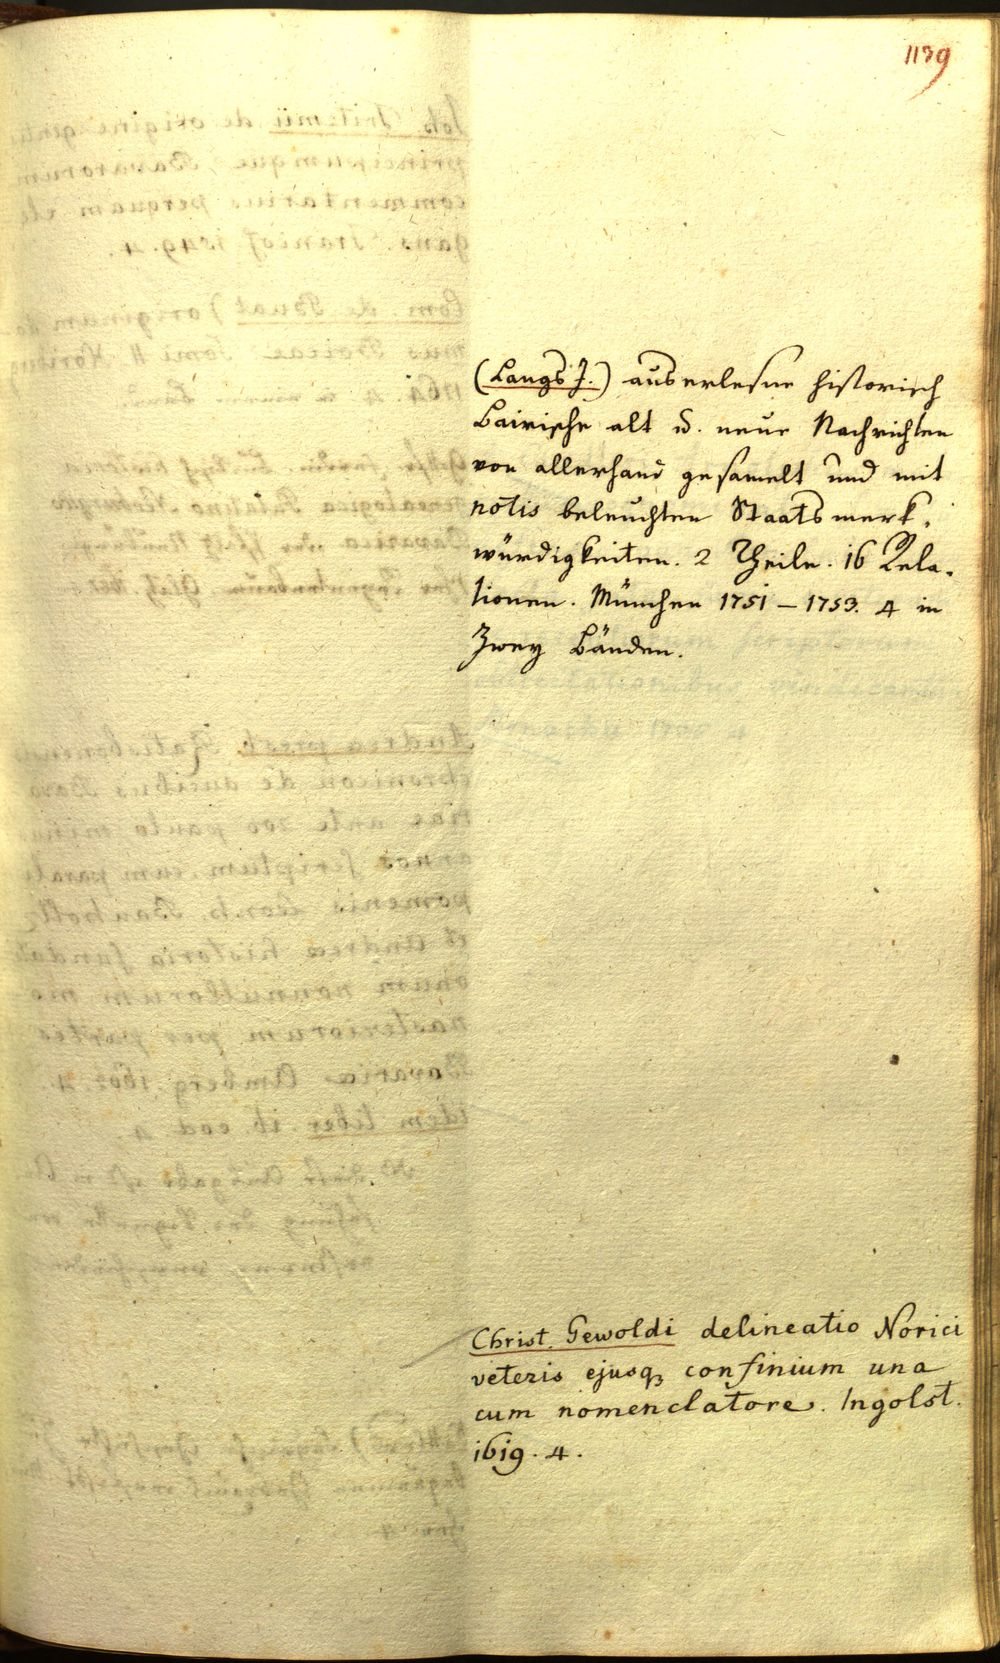 1139
(Langs J.) auserlesne historisch
Bairische alt u. neue Nachrichten
von allerhand gesamelt und mit
notis beleuchten Staatsmerk-
würdigkeiten. 2 Theile. 16 Rela-
tionen. München 1751 – 1753. 4 in
Zwey Bänden.
Christ. Gewoldi delineatio Norici
veteris ejusq; confinium una
cum nomenclatore. Ingolst.
1619. 4.